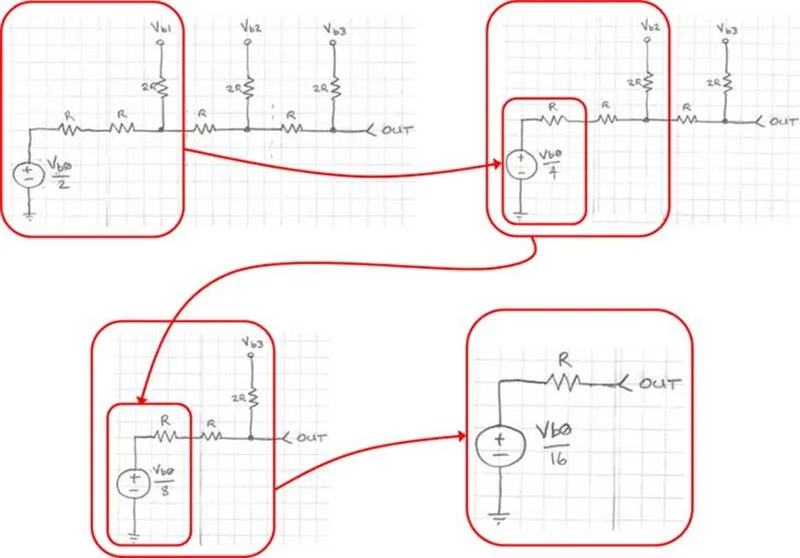 Vb1
Vb2
Vb3
2R
2R
2R
R
R
R
R
OUT
+
-
Vb0
2
Vb2
Vb3
2R
2R
R
R
R
OUT
+
-
Vb0
4
Vb3
2R
R
R
OUT
+
-
Vb0
8
R
OUT
+
-
Vb0
16